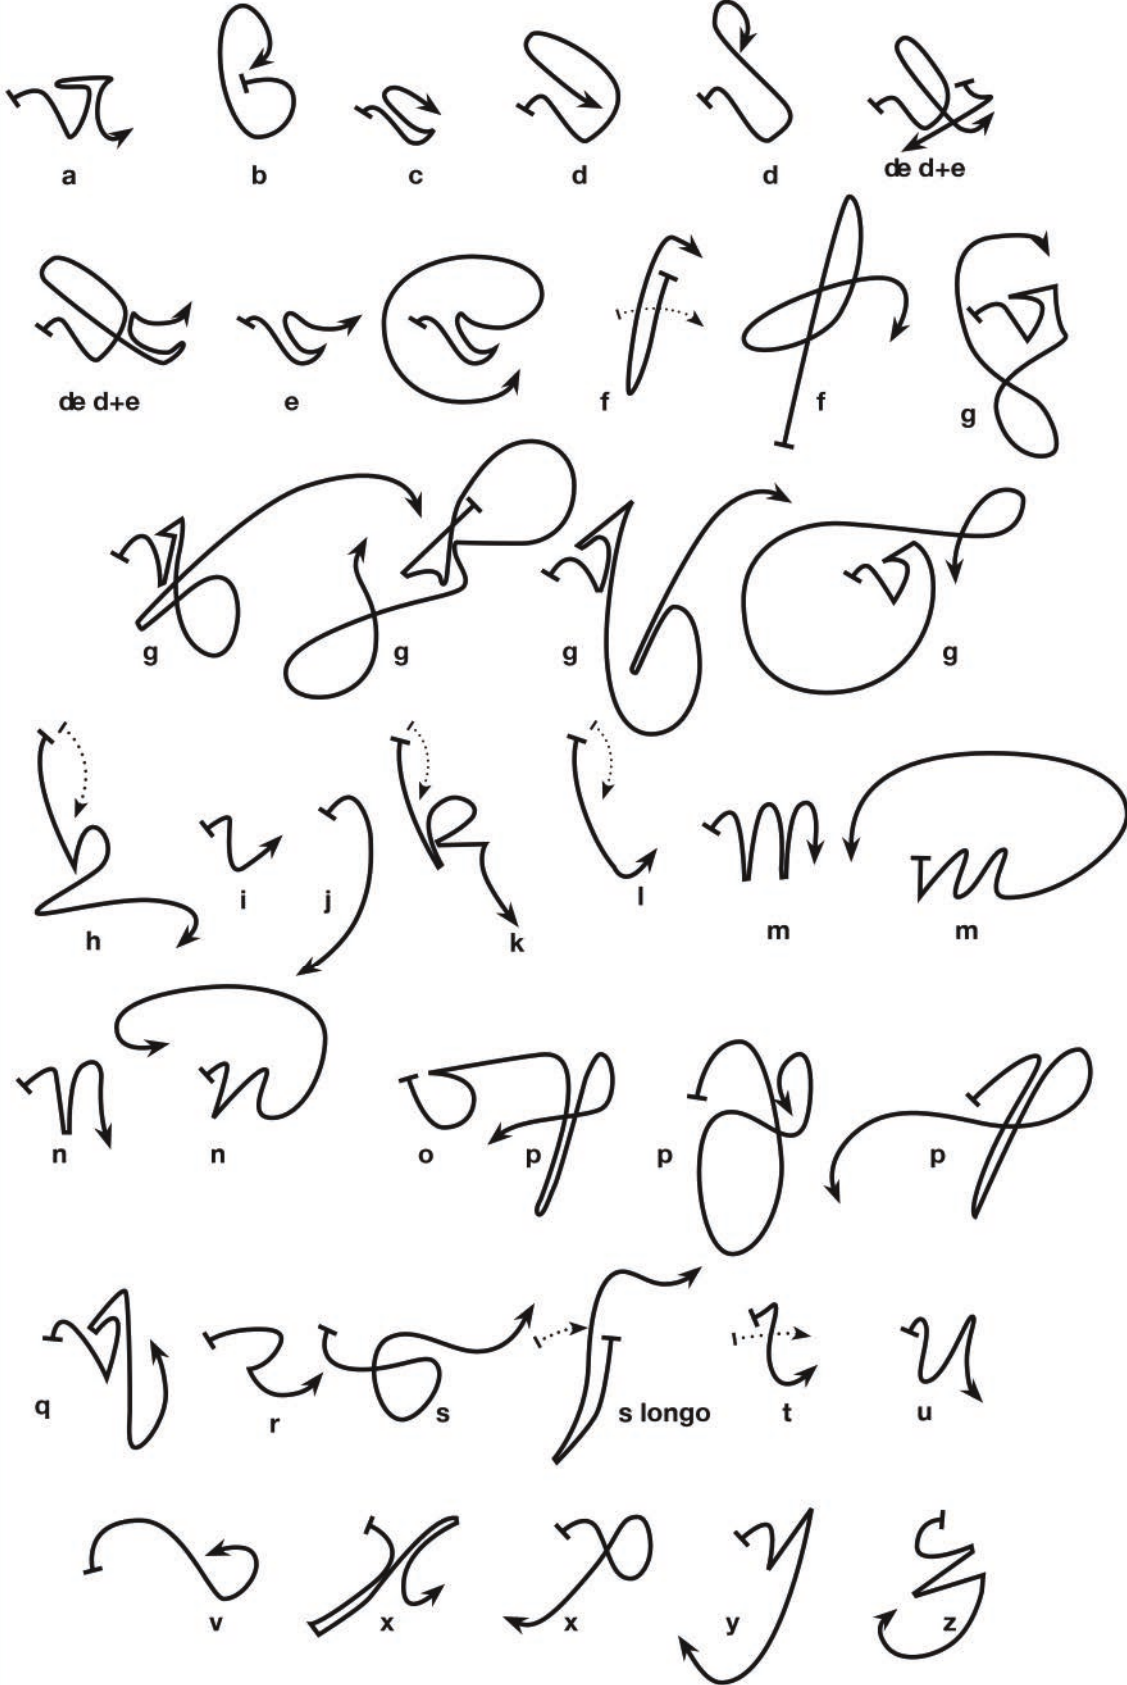 a b c d d de d+e
de d+e e f f g
g g g g
h i j k l m m
n n o p p p
q r s s longo t u
v x x y z